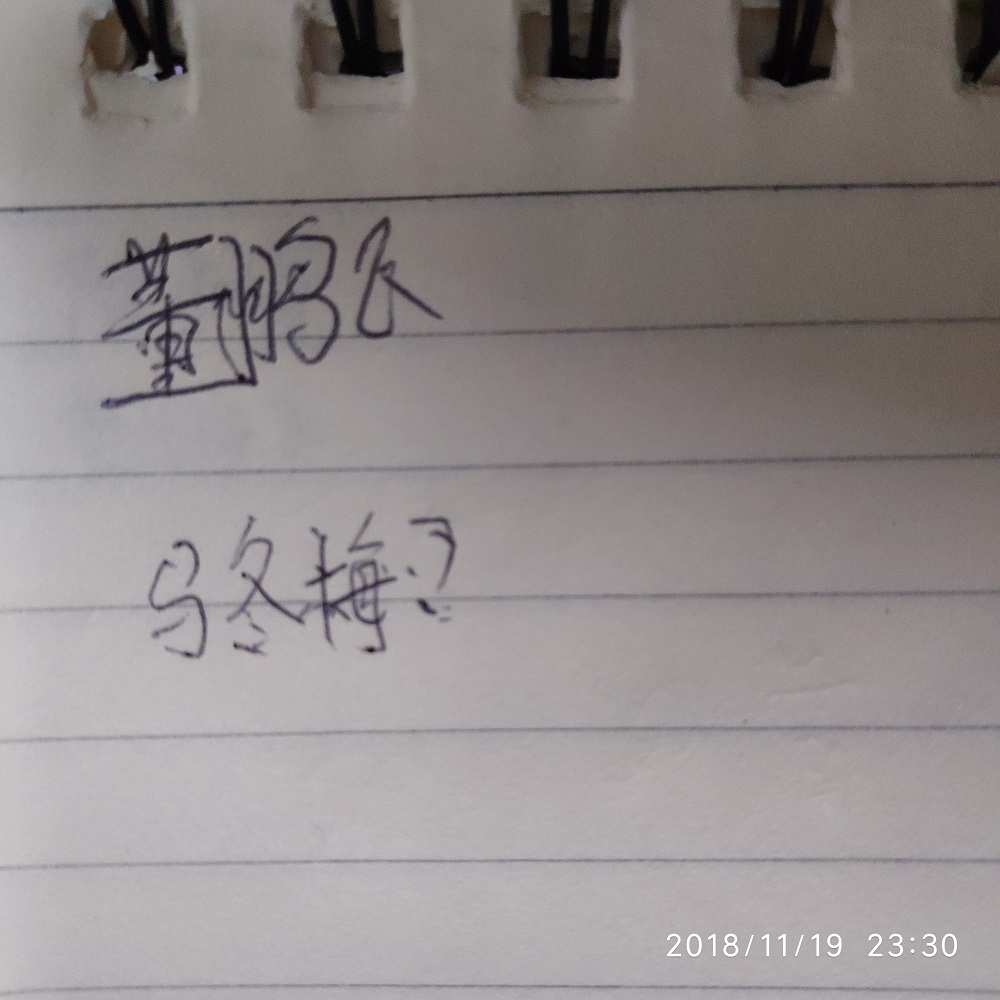 董鹏飞
马冬梅?
2018/11/19 23:30